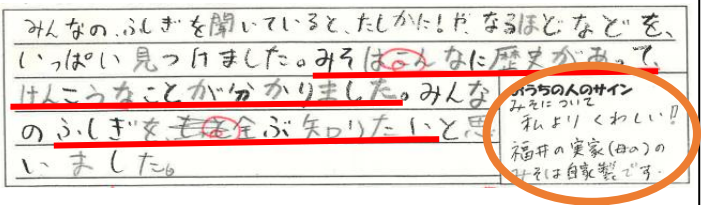 みんなの、ふしぎを聞いていると、たしかに!や、なるほど などを、
いっぱい見つけました。みそはこんなに歴史があって、
けんこうなことが分かりました。みんな
のふしぎを、全ぶ知りたいと思
いました。
おうちの人のサイン
みそについて
私よりくわしい!!
福井の実家(母の)の
みそは自家製です。